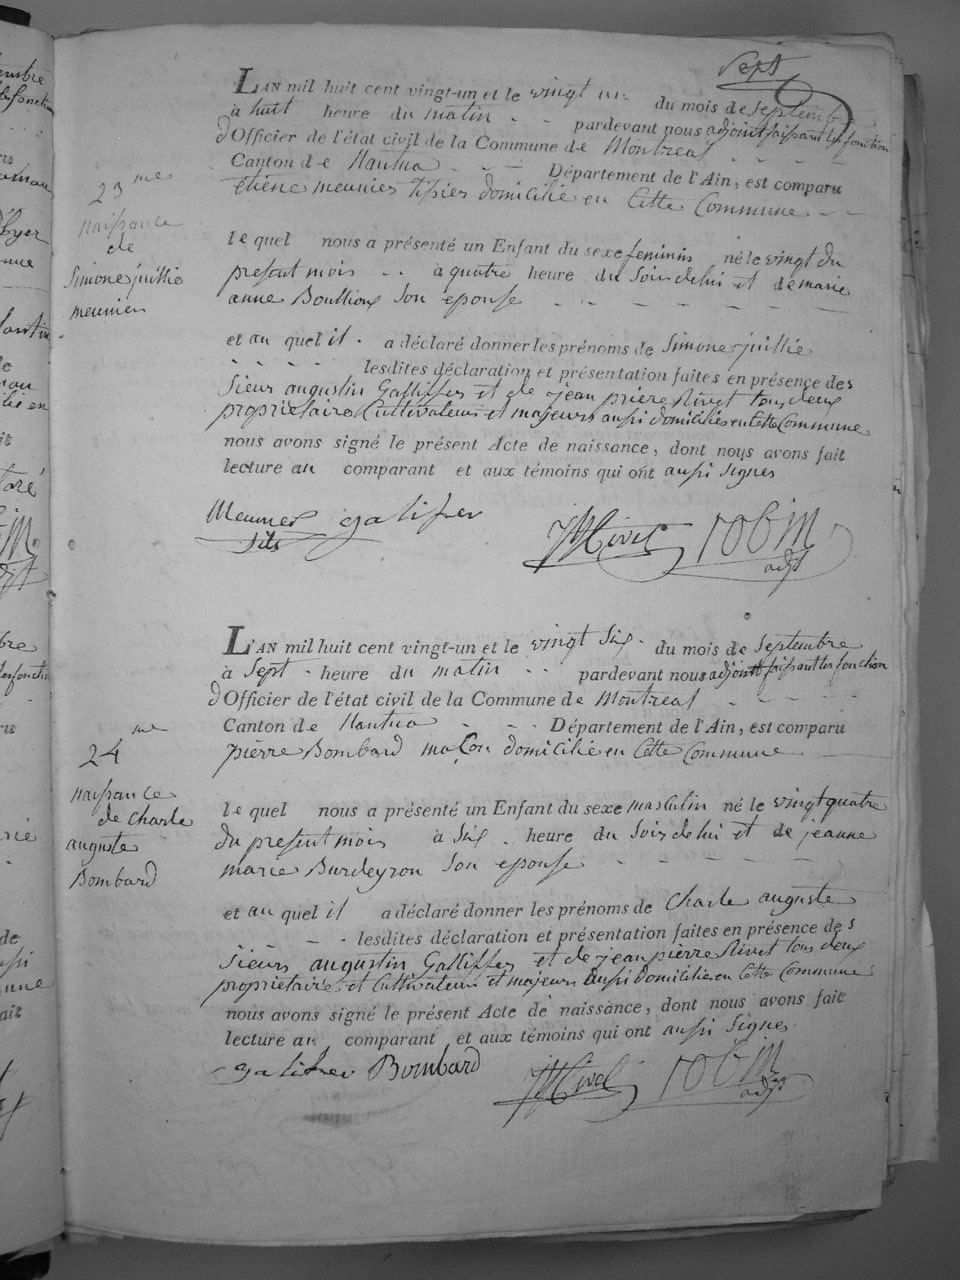 Sept
LAN mil huit cent vingt-un et le vingt un du mois de septembre
à huit heure du matin - - pardevant nous adjoint faisant les fonction
d'Officier de l'état civil de la Commune de Montreal - - - -
Canton de Nantua - - - Département de l'Ain, est comparu
étiene meunier tisier domicilié en Cette Commune - -
23 me
naissance
de
Simone juillie
meunier
le quel nous a présenté un Enfant du sexe feminin né le vingt du
present mois - - à quatre heure du Soir de lui et de marie
anne Boullioux Son epouse - - - - - -
et au quel il - a déclaré donner les prénoms de Simone juillie
- - - - lesdites déclaration et présentation faites en présence des
Sieur augustin Galliffet et de jean pierre Nivet tous deux
proprietaire Cultivateur et majeurs aussi domiciliés en Cette Commune
nous avons signé le présent Acte de naissance, dont nous avons fait
lecture au comparant et aux témoins qui ont aussi Signes
Meunier galifier
fils
JP Nivet robin
adjt
LAN mil huit cent vingt-un et le vingt Six - du mois de Septembre
à Sept - heure du matin - - pardevant nous adjoint faisant les fonction
d'Officier de l'état civil de la Commune de Montreal - - - -
Canton de Nantua - - - Département de l'Ain, est comparu
pierre Bombard maçon domicilié en Cette Commune
24 me
naissance
de Charle
auguste
Bombard
le quel nous a présenté un Enfant du sexe masculin né le vingt quatre
du present mois à Six - heure du Soir de lui et de jeanne
marie Burdeyron Son epouse - - - - - -
et au quel il a déclaré donner les prénoms de Charle auguste
- - - lesdites déclaration et présentation faites en présence des
Sieurs augustin Galliffet et de jean pierre Nivet tous deux
proprietaire et Cultivateur et majeurs aussi domicilié en Cette Commune
nous avons signé le présent Acte de naissance, dont nous avons fait
lecture au comparant et aux témoins qui ont aussi Signes
galifier Bombard JP Nivet robin
adjt